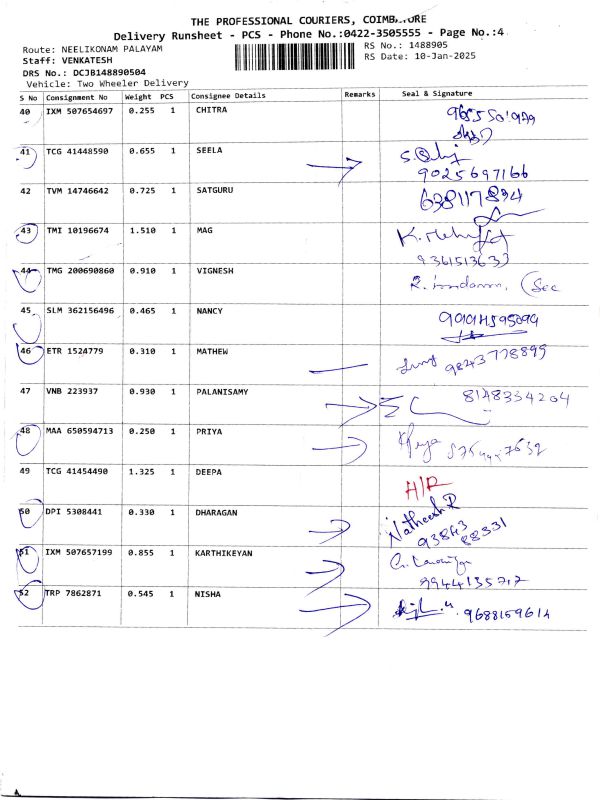 THE PROFESSIONAL COURIERS, COIMBATORE
Delivery Runsheet - PCS - Phone No.:0422-3505555 - Page No.:4
Route: NEELIKONAM PALAYAM
RS No.: 1488905
Staff: VENKATESH
RS Date: 10-Jan-2025
DRS No.: DCJB148890504
Vehicle: Two Wheeler Delivery
S No Consignment No Weight PCS Consignee Details Remarks Seal & Signature
40 IXM 507654697 0.255 1 CHITRA
41 TCG 41448590 0.655 1 SEELA
9025697166
42 TVM 14746642 0.725 1 SATGURU
638117834
43 TMI 10196674 1.510 1 MAG
9361513633
44 TMG 200690860 0.910 1 VIGNESH
45 SLM 362156496 0.465 1 NANCY
46 ETR 1524779 0.310 1 MATHEW
9843778899
47 VNB 223937 0.930 1 PALANISAMY 8148334204
48 MAA 650594713 0.250 1 PRIYA Priya
49 TCG 41454490 1.325 1 DEEPA H/R
50 DPI 5308441 0.330 1 DHARAGAN Natheesh R
93843
88331
51 IXM 507657199 0.855 1 KARTHIKEYAN
9944135717
52 TRP 7862871 0.545 1 NISHA 9688159614